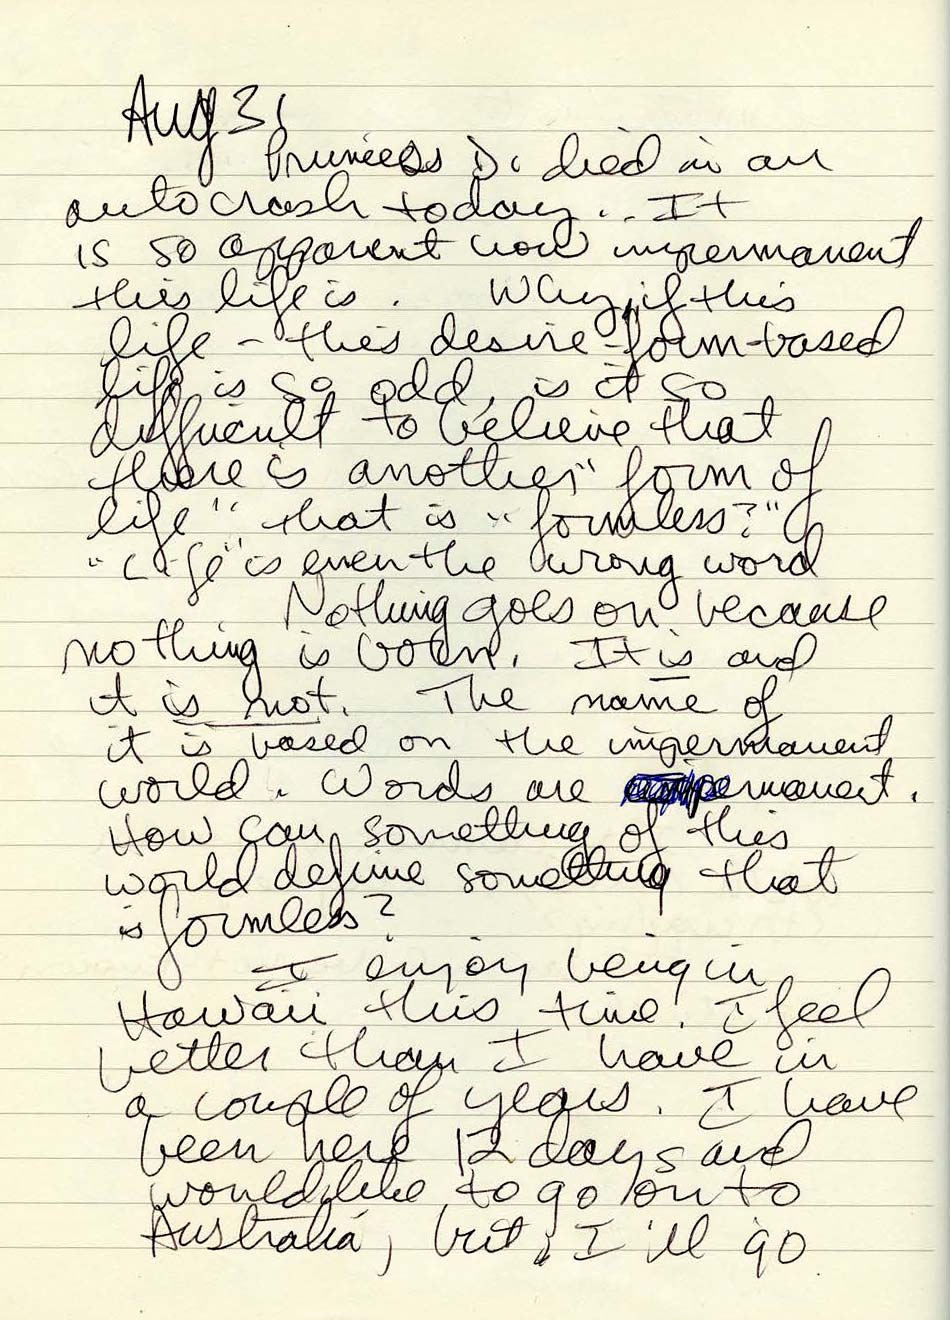 Aug 31
Princess Di died in an
auto crash today. It
is so apparent how impermanent
this life is. Why, if this
life - this desire-form-based
life is so odd, is it so
difficult to believe that
there is another "form of
life" that is "formless?"
"Life" is even the wrong word
Nothing goes on because
nothing is born. It is and
it is not. The name of
it is based on the impermanent
world. Words are permanent.
How can something of this
world define something that
is formless?
I enjoy being in
Hawaii this time. I feel
better than I have in
a couple of years. I have
been here 12 days and
would like to go on to
Australia, but, I'll go